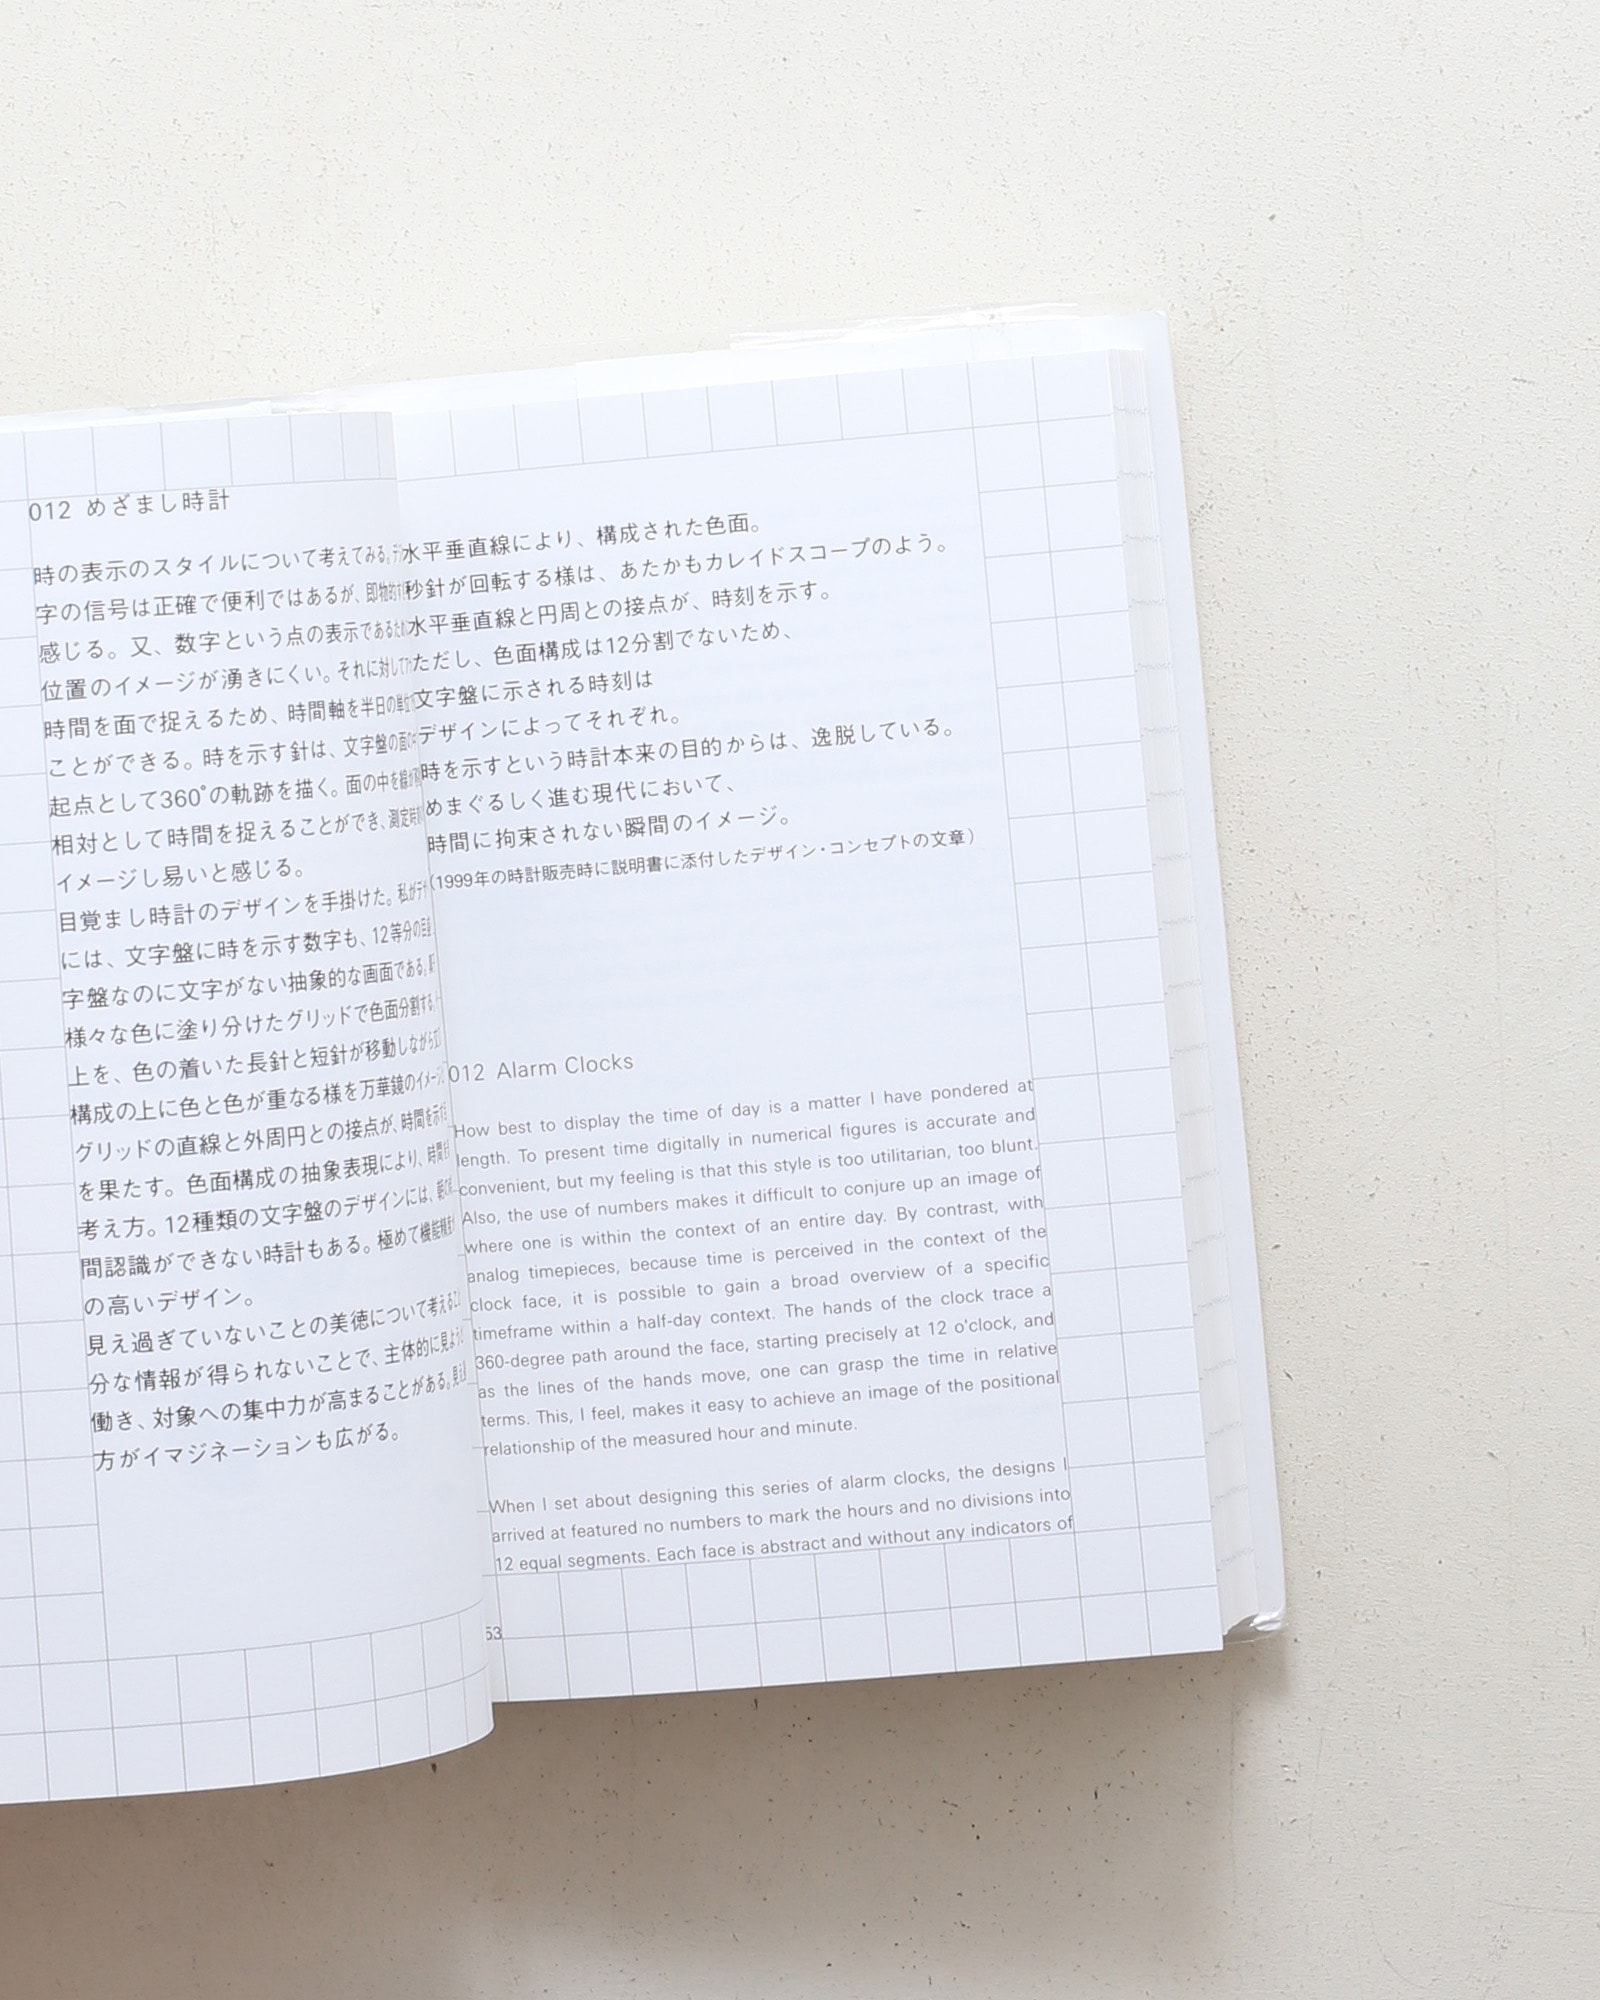 012 めざまし時計
時の表示のスタイルについて考えてみる。デジ
字の信号は正確で便利ではあるが、即物的す
感じる。又、数字という点の表示であるため
位置のイメージが湧きにくい。それに対してア
時間を面で捉えるため、時間軸を半日の単位で
ことができる。時を示す針は、文字盤の面の
起点として360°の軌跡を描く。面の中を線が
相対として時間を捉えることができ、測定時
イメージし易いと感じる。
目覚まし時計のデザインを手掛けた。私がデザ
には、文字盤に時を示す数字も、12等分の
字盤なのに文字がない抽象的な画面である。
様々な色に塗り分けたグリッドで色面分割する。
上を、色の着いた長針と短針が移動しながら
構成の上に色と色が重なる様を万華鏡のイメージ
グリッドの直線と外周円との接点が、時間を示す
を果たす。色面構成の抽象表現により、時間を
考え方。12種類の文字盤のデザインには、
間認識ができない時計もある。極めて機能精度
の高いデザイン。
見え過ぎていないことの美徳について考える
分な情報が得られないことで、主体的に見よう
働き、対象への集中力が高まることがある。見え
方がイマジネーションも広がる。
水平垂直線により、構成された色面。
秒針が回転する様は、あたかもカレイドスコープのよう。
水平垂直線と円周との接点が、時刻を示す。
ただし、色面構成は12分割でないため、
文字盤に示される時刻は
デザインによってそれぞれ。
時を示すという時計本来の目的からは、逸脱している。
めまぐるしく進む現代において、
時間に拘束されない瞬間のイメージ。
(1999年の時計販売時に説明書に添付したデザイン・コンセプトの文章)
012 Alarm Clocks
How best to display the time of day is a matter I have pondered at
length. To present time digitally in numerical figures is accurate and
convenient, but my feeling is that this style is too utilitarian, too blunt.
Also, the use of numbers makes it difficult to conjure up an image of
where one is within the context of an entire day. By contrast, with
analog timepieces, because time is perceived in the context of the
clock face, it is possible to gain a broad overview of a specific
timeframe within a half-day context. The hands of the clock trace a
360-degree path around the face, starting precisely at 12 o'clock, and
as the lines of the hands move, one can grasp the time in relative
terms. This, I feel, makes it easy to achieve an image of the positional
relationship of the measured hour and minute.
When I set about designing this series of alarm clocks, the designs I
arrived at featured no numbers to mark the hours and no divisions into
12 equal segments. Each face is abstract and without any indicators of
53